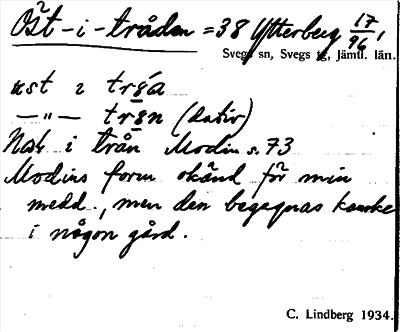 Öst-i-tråden = 38 Ytterberg 17/96,
Svegs sn, Svegs tg, Jämtl. län.
ust i
–"– (dativ)
i trån Modin s. 73
Modins form okänd för min
medd., men den begagnas kanske
i någon gård.
C. Lindberg 1934.